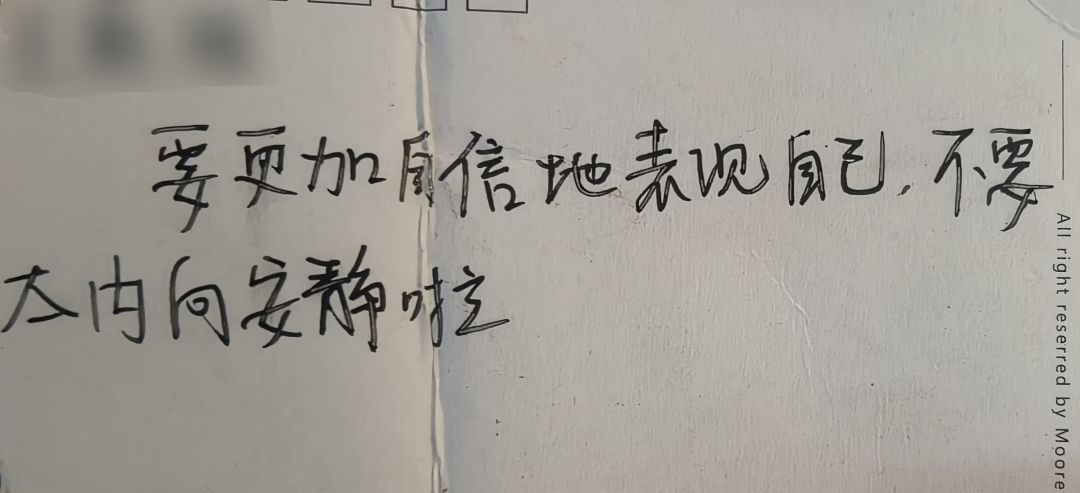 要更加自信地表现自己,不要
太内向安静啦
All right reserred by Moore